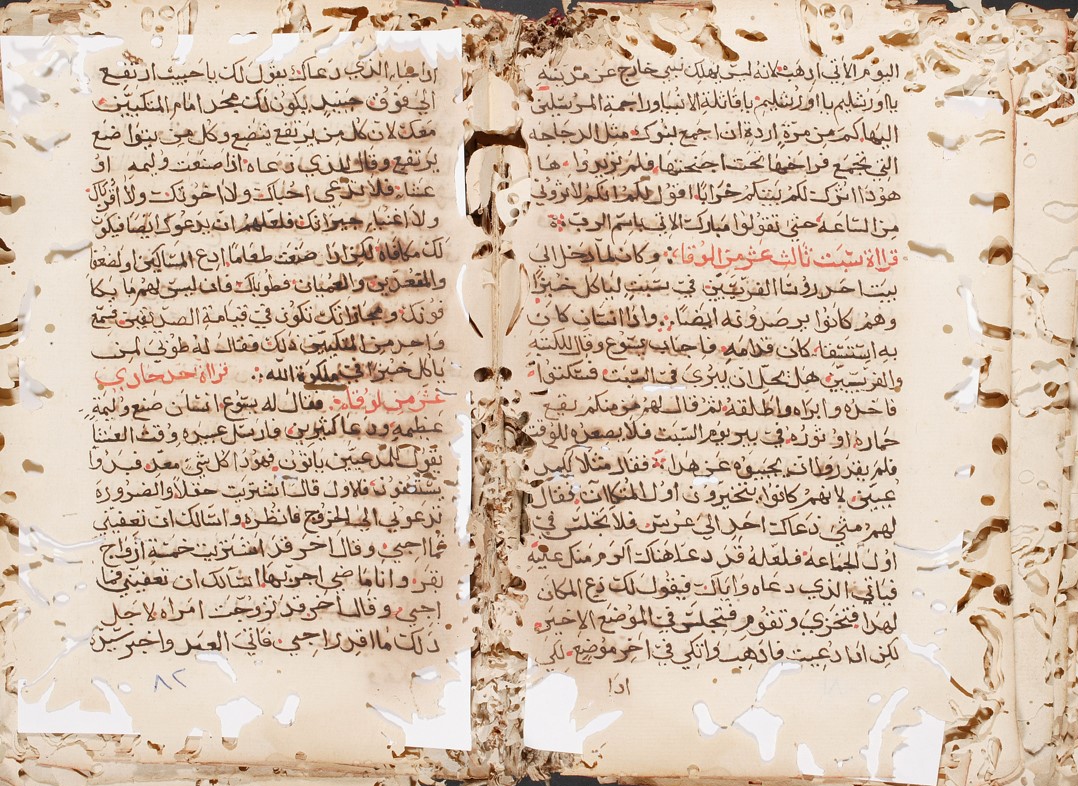 اليوم الاتي ادهب لانه ليس يهلك نبي خارج عن مدينة
يا اورشليم يا اورشليم يا قاتلة الانبيا وراجمة المرسلين
اليها كم من مرة اردة ان اجمع بنوك مثل الدجاجه
التي تجمع فراخها تحت اجنحتها فلم تريدوا ها
هودا اترك لكم بيتكم خرابا اقول لكم انكم لا تروني
من الساعة حتى تقولوا مبارك الاتي باسم الرب
قراة سبت تالت عشر من لوقا وكان لما دخل الى
بيت احد روسا الفريسيين في سبت لياكل خبزا
وهم كانوا يرصدونه ايضا واذا انسان كان
به استسقا كان قدامه فاجاب يسوع وقال للكتبه
والفريسيين هل يحل ان يبرى في السبت فسكتوا
فاخده وابراه واطلقه تم قال لهم من منكم يقع
حماره او توره في بير يوم السبت فلا يصعده للوقت
فلم يقدروا ان يجيبوه عن هدا فقال متلا للمد
عيين لانهم كانوا يتخيرون اول المتكات فقال
لهم متى دعاك احد الى عرس فلا تجلس في
اول الجماعة فلعله قد دعا هناك اكرم منك عنده
فياتي الدي دعاه واياك فيقول لك دع المكان
لهدا فتخزى وتقوم فتجلس في الموضع الاخير
لكن ادا دعيت فادهب واتكي في اخر موضع لكي
ادا
ادا جاء الذي دعاك يقول لك يا حبيب ارتفع
الى فوق حينيد يكون لك مجد امام المتكيين
معك لان كل من يرتفع يتضع وكل من يتواضع
يرتفع وقال للدي دعاه اذا صنعت وليمه او
عشا فلا تدعي احباك ولا اخوتك ولا اقرباك
ولا اغنيا جيرانك فلعلهم ان يدعوك ايضا فيكون
لك مكافاة لكن ادا صنعت طعاما ادع المساكين والضعفا
والمقعدين والعميان فطوباك فان ليس لهم ما يكا
فونك ومجازاتك تكون في قيامة الصديقين فسمع
واحد من المتكيين دلك فقال له طوبى لمن
ياكل خبزا في ملكوة الله قراة احد حادي
عشر من لوقا فقال له يسوع انسان صنع وليمه
عظيمه ودعا كثيرين فارسل عبده وقت العشا
يقول للمدعيين ياتون فهودا كل شي معد فبدوا
يستعفون فالاول قال اشتريت حقلا والضروره
تدعوني الى الخروج فانظره واسالك ان تعفيني
فما اجي وقال اخر قد اشتريت خمسة ازواج
بقر وانا ماضي اجربها اسالك ان تعفيني فما
اجي وقال اخر قد تزوجت امراه لاجل
دلك ما اقدر اجي فاتى العبد واخبر سيده
٨٢